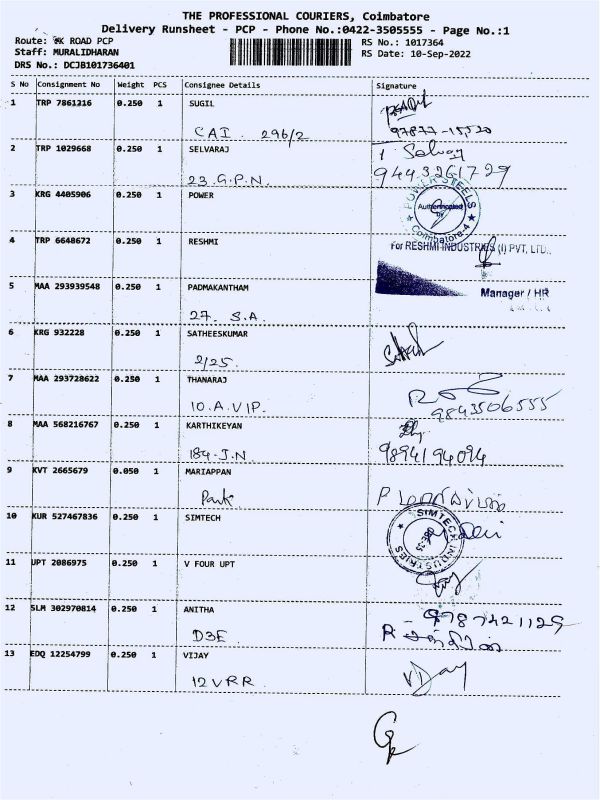 THE PROFESSIONAL COURIERS, Coimbatore
Delivery Runsheet - PCP - Phone No.:0422-3505555 - Page No.:1
Route: KK ROAD PCP
RS No.: 1017364
Staff: MURALIDHARAN
RS Date: 10-Sep-2022
DRS No.: DCJB101736401
S No Consignment No Weight PCS Consignee Details Signature
1 TRP 7861316 0.250 1 SUGIL
CAI. 296/2 97877-15520
2 TRP 1029668 0.250 1 SELVARAJ Selvaraj
23 G.P.N. 9443261729
3 KRG 4405906 0.250 1 POWER
POWER STEELS
Authenticated
by
Coimbatore-4
4 TRP 6648672 0.250 1 RESHMI
For RESHMI INDUSTRIES (I) PVT, LTD.,
Manager / HR
5 MAA 293939548 0.250 1 PADMAKANTHAM
27. S.A.
6 KRG 932228 0.250 1 SATHEESKUMAR
2/25.
7 MAA 293728622 0.250 1 THANARAJ
10.A.VIP. 9843506555
8 MAA 568216767 0.250 1 KARTHIKEYAN
184-J.N. 9894194094
9 KVT 2665679 0.050 1 MARIAPPAN
Park
10 KUR 527467836 0.250 1 SIMTECH
SIMTECK INDUSTRIES
11 UPT 2086975 0.250 1 V FOUR UPT
12 SLM 302970814 0.250 1 ANITHA
D3E 9787421129
13 EDQ 12254799 0.250 1 VIJAY
12 VRR Vijay